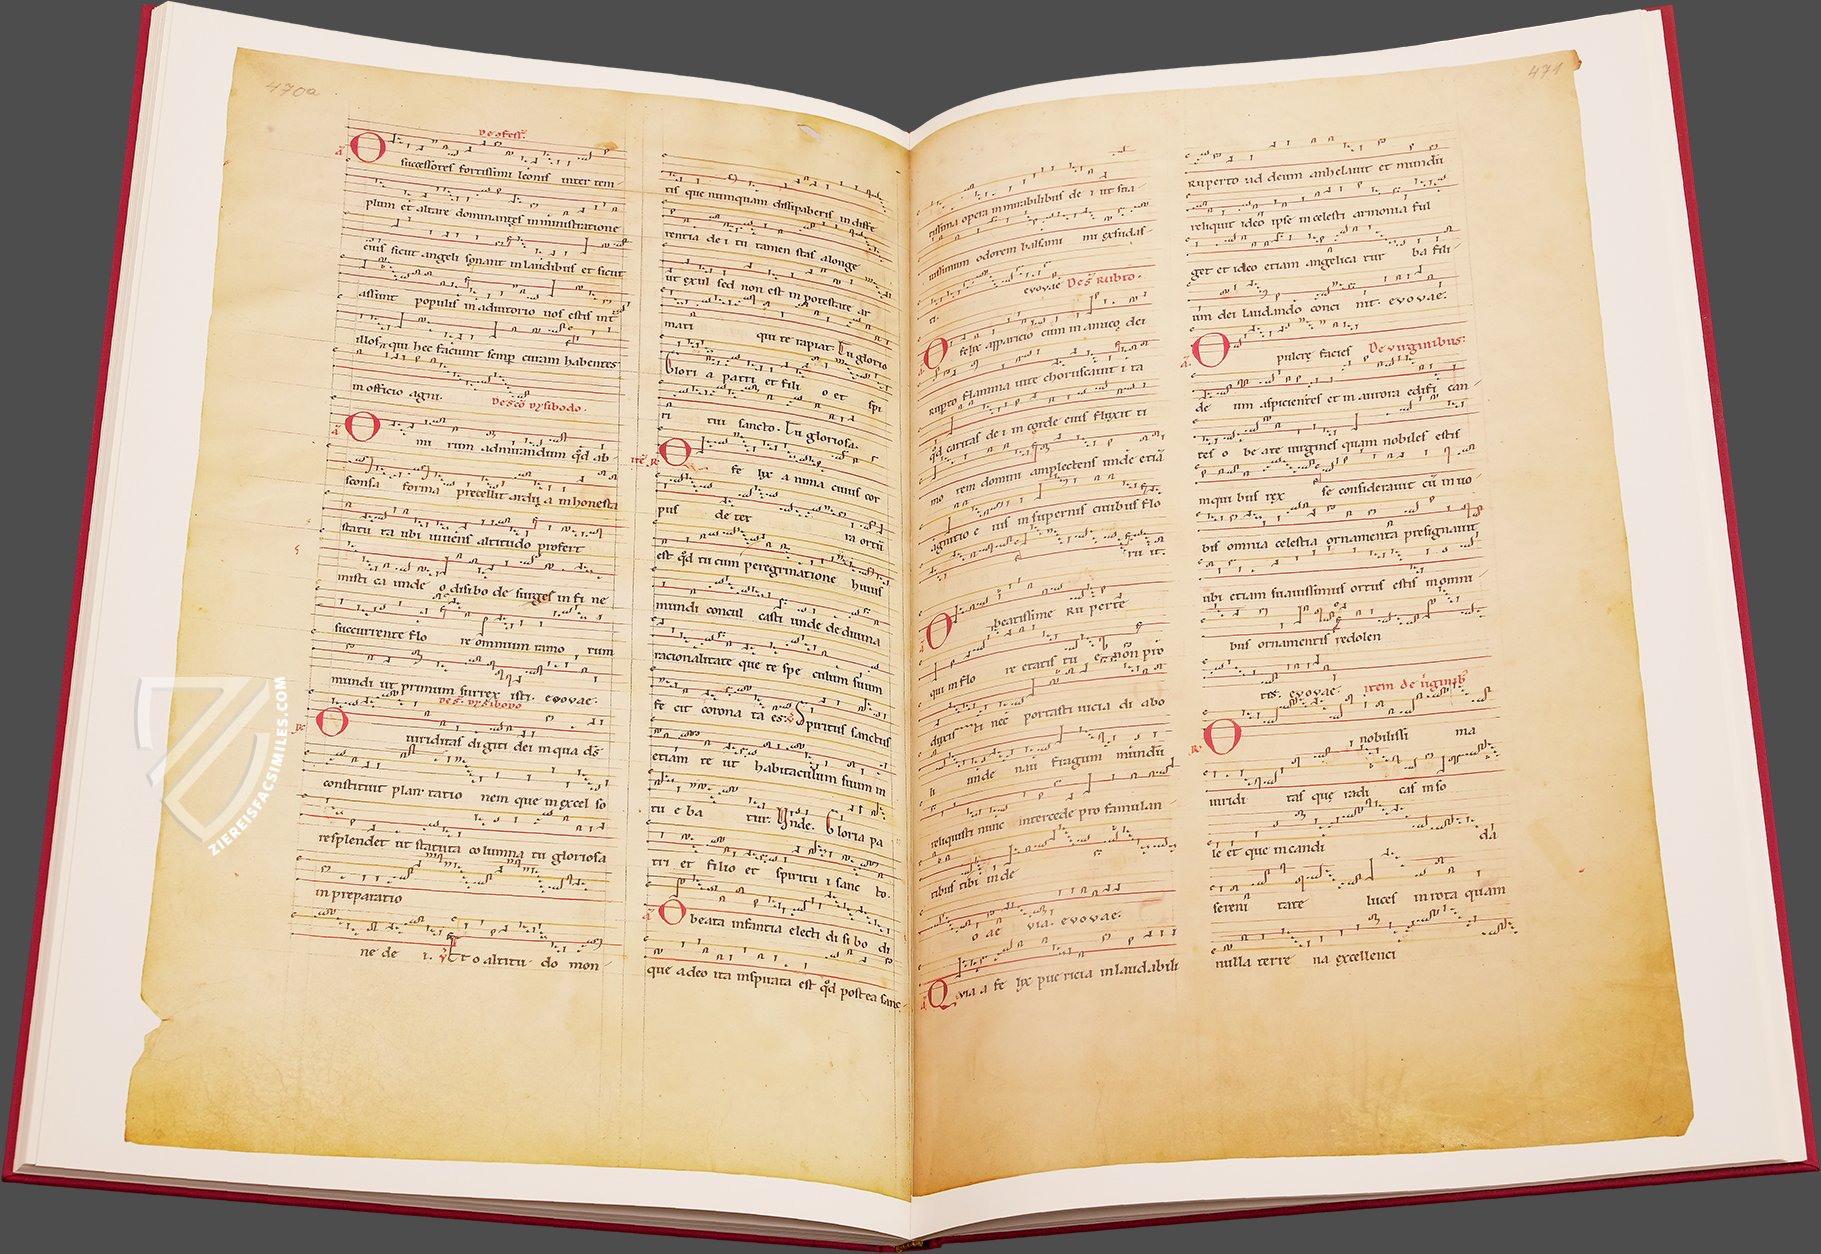 470a
De ꝯfess.
O
successores fortissimi leonis inter tem-
plum et altare dominantes in ministratione
eius sicut angeli sonant in laudibus et sicut
assunt populis in adiutorio vos estis int
illos qui hec faciunt semp curam habentes
in officio agni.
De sco dysibodo.
O mi rum admirandum qd ab
sconsa forma precellit ardua in honesta
statu ra ubi vivens altitudo profert
misti ca unde o disibo de surges in fi ne
succurrente flo re omnium ramo rum
mundi ut primum surrex isti. evovae.
De s. dysibodo
O viriditas digiti dei in qua ds
constituit plan tatio nem que in excel so
resplendet ut statuta columna tu gloriosa
in preparatio
ne de i. V Et o altitu do mon-
tis que numquam dissipaberis in diffe
rentia de i tu tamen stas a longe
ut exul sed non est in potestate ar
mati qui te rapiat. Tu glorio
Glori a patri et fili o et spi
ri tui sancto. Tu gloriosa.
ite R
O fe lix a nima cuius cor
pus de ter ra ortu
est qd tu cum peregrinatione huius
mundi concul casti unde de divina
racionalitate que te spe culum suum
fe cit corona ta es. V Spiritus sanctus
etiam te ut habitaculum suum in
tu e ba tur. Unde. Gloria pa
tri et filio et spiritu i sanc to.
O beata infantia electi di si bo di
que a deo ita inspirata est qd postea sanc-
471
tissima opera in mirabilibus de i ut sua-
vissimum odorem balsami mi exsudas-
ti. evovae De s. Rubto.
O felix apparicio cum in amico dei
rupto flamma vite choruscavit i ta
qd caritas de i in corde eius fluxit ti
mo rem domini amplectens unde etia
agnitio e ius in supernis civibus flo
ru it.
O beatissime Ru perte
qui in flo re etatis tu e non pro
duxisti nec portasti vicia di abo
li unde nau fragum mundu
reliquisti nunc intercede pro famulan-
tibus tibi in de
o ae via. evovae.
Q via a fe lix pue ricia in laudabili
Ruperto ad deum anhelavit et mundu
reliquit ideo ipse in celesti armonia ful
get et ideo etiam angelica tur ba fili-
um dei laudando conci nit. evovae.
O pulcre facies De virginibus.
de um aspicientes et in aurora edifi can-
tes o be ate virgines quam nobiles estis
in qui bus rex se consideravit cu in vo-
bis omnia celestia ornamenta presignavit
ubi etiam suavissimus ortus estis in omni-
bus ornamentis redolen
tes. evovae. item de uginib
R O nobilissi ma
viridi tas que radi cas in so
le et que in candi da
sereni tate luces in rota quam
nulla terre na excellenci
ZIEREISFACSIMILES.COM